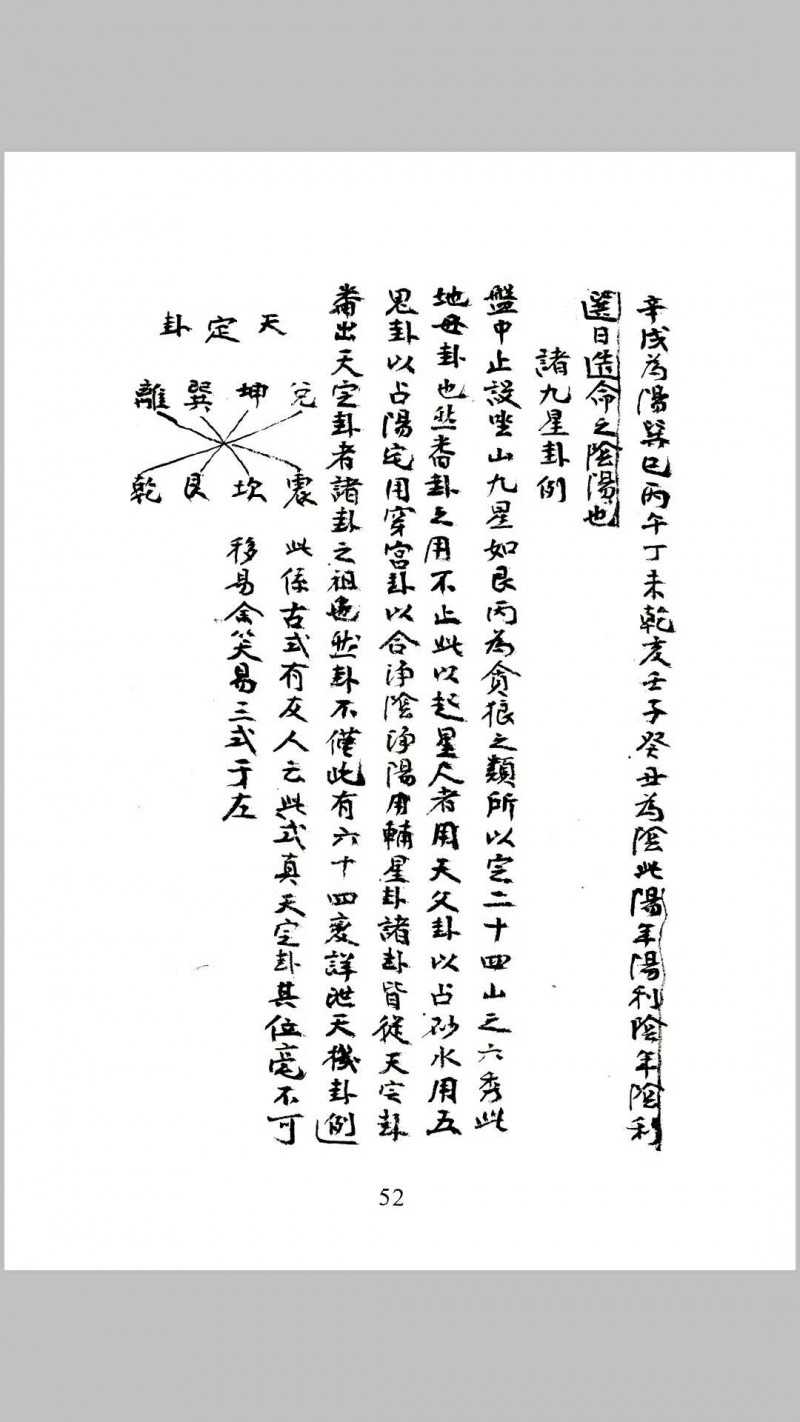 辛戌為陽巽巳丙午丁未乾亥壬子癸丑為陰此陽年陽利陰年陰利
選日造命之陰陽也
諸九星卦例
盤中止設坐山九星如艮丙為貪狼之類所以定二十四山之六秀此
地母卦也然番卦之用不止此以起星人者用天父卦以占砂水用五
鬼卦以占陽宅用穿宮卦以合淨陰淨陽用輔星卦諸卦皆從天定卦
番出天定卦者諸卦之祖也然卦不僅此有六十四変詳泄天機卦例
天定卦
兌坤巽離
震坎艮乾
此係古式有友人云此式真天定卦其位毫不可
移易余笑易三式于左
52